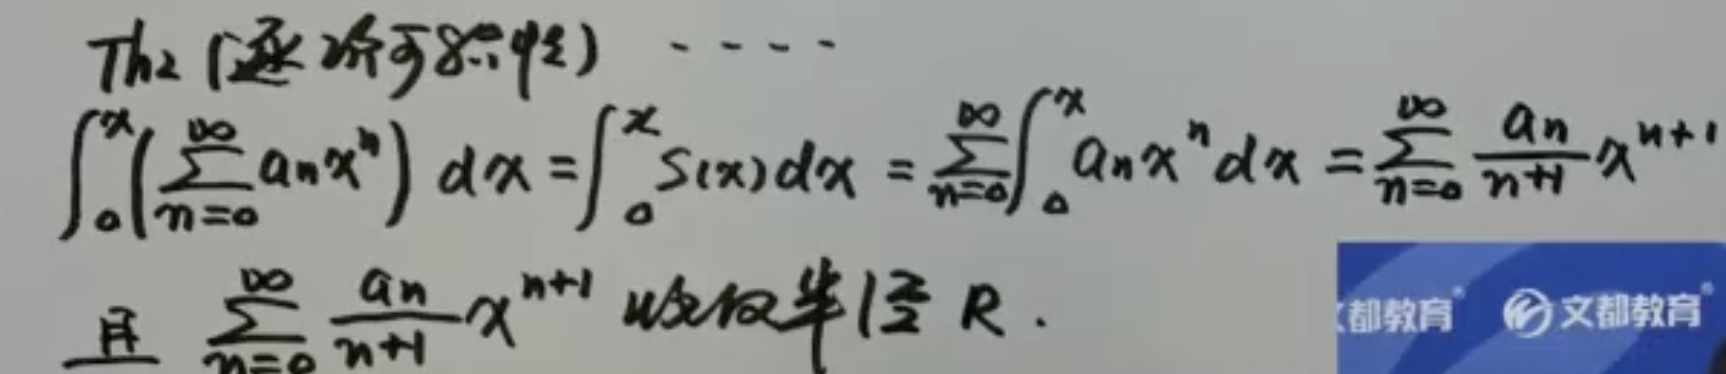 Th2 (逐项可积性) ----
∫₀ˣ(∑_{n=0}^{∞} aₙxⁿ) dx = ∫₀ˣ S(x)dx = ∑_{n=0}^{∞} ∫₀ˣ aₙxⁿdx = ∑_{n=0}^{∞} \frac{aₙ}{n+1} x^{n+1}
且 ∑_{n=0}^{∞} \frac{aₙ}{n+1} x^{n+1} 收敛半径 R.
都教育 文都教育